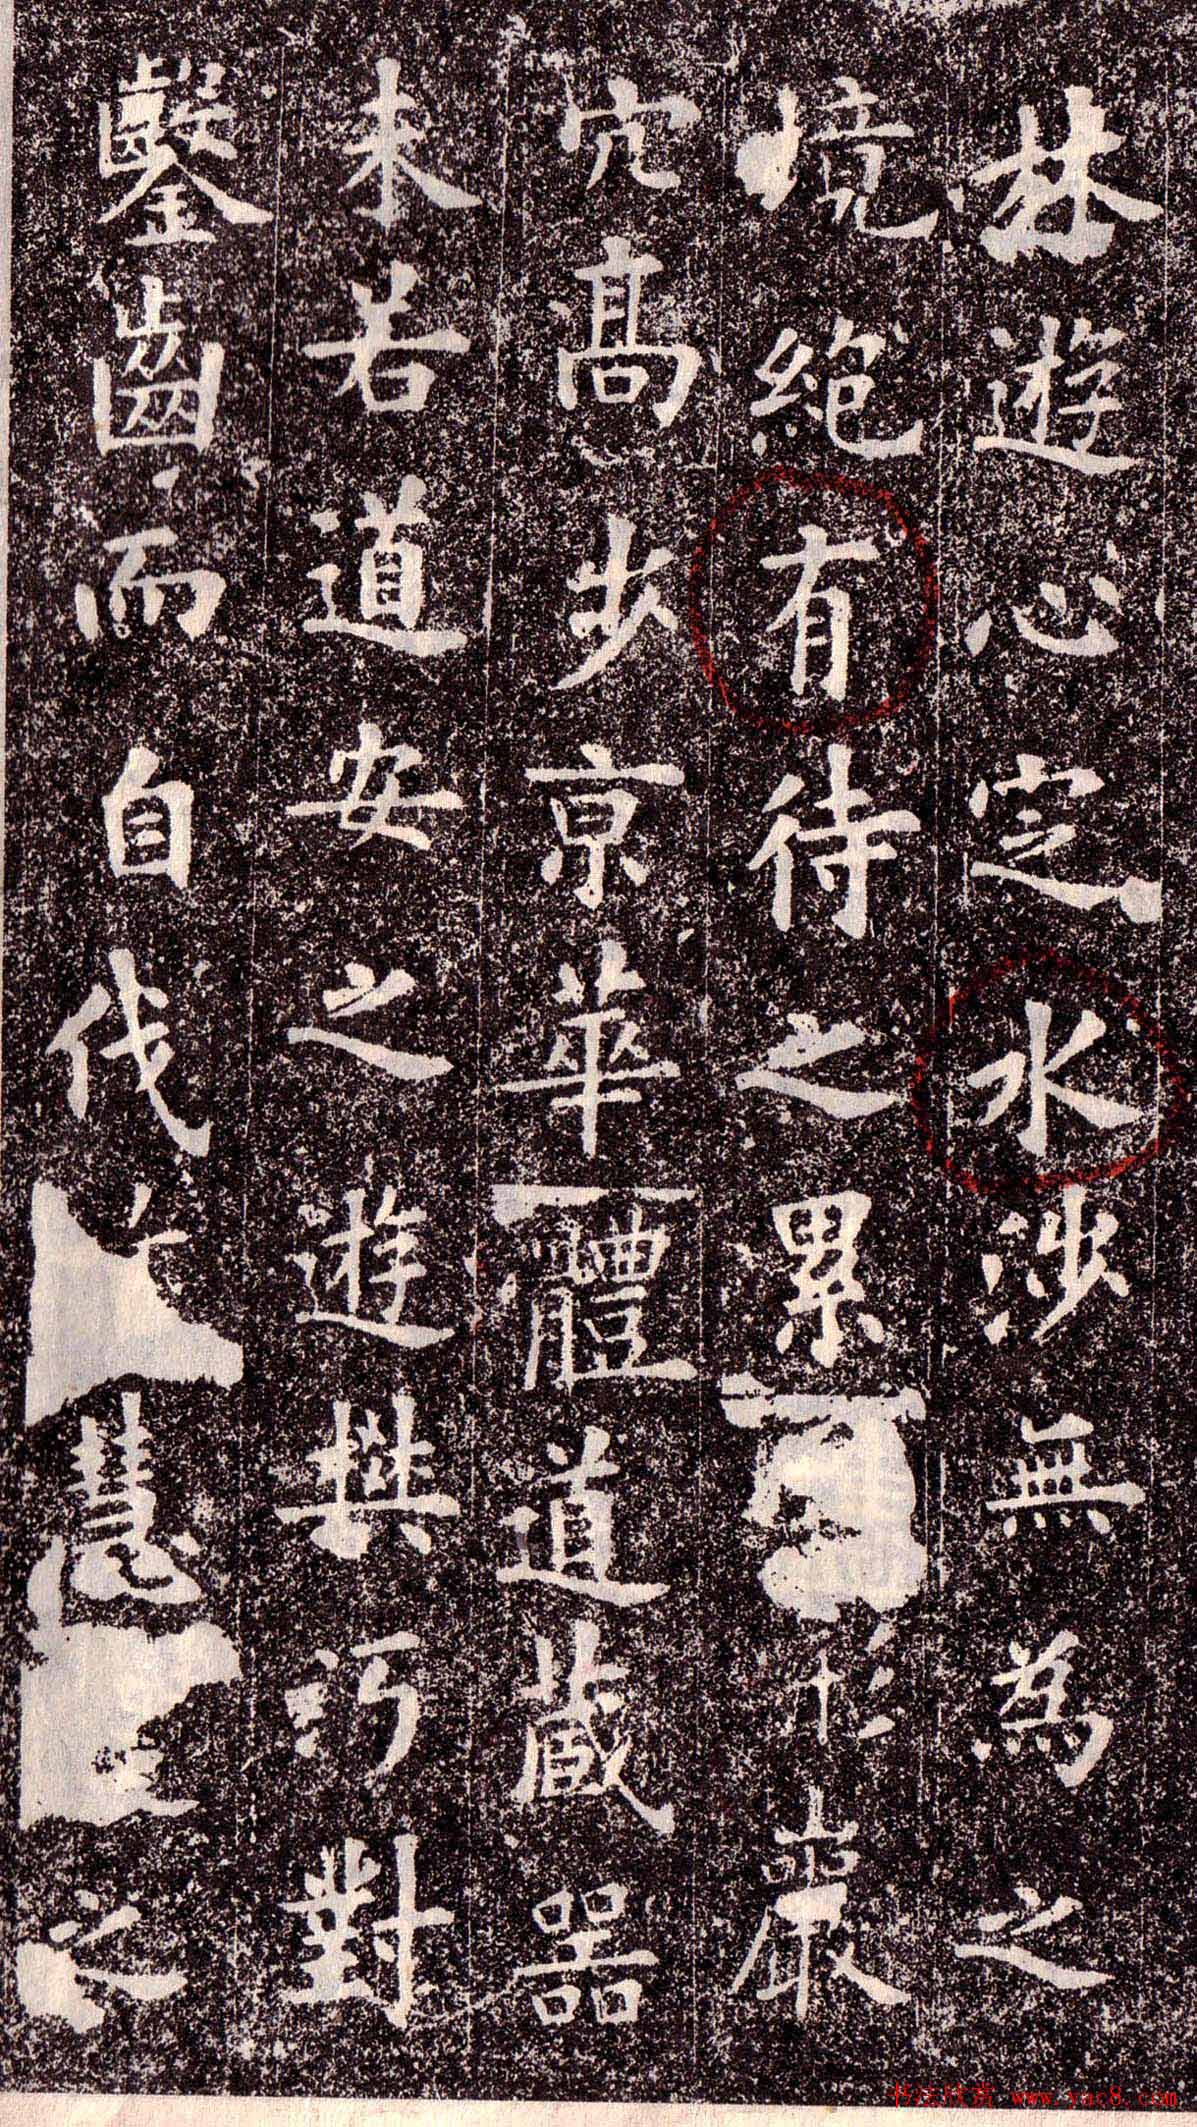 林遊心定水涉無為之
境絕有待之累形巖
穴高步京華體道藏器
未若道安之遊樊沔對
鑿齒而自伐慧之
书法欣赏 www.yac8.com